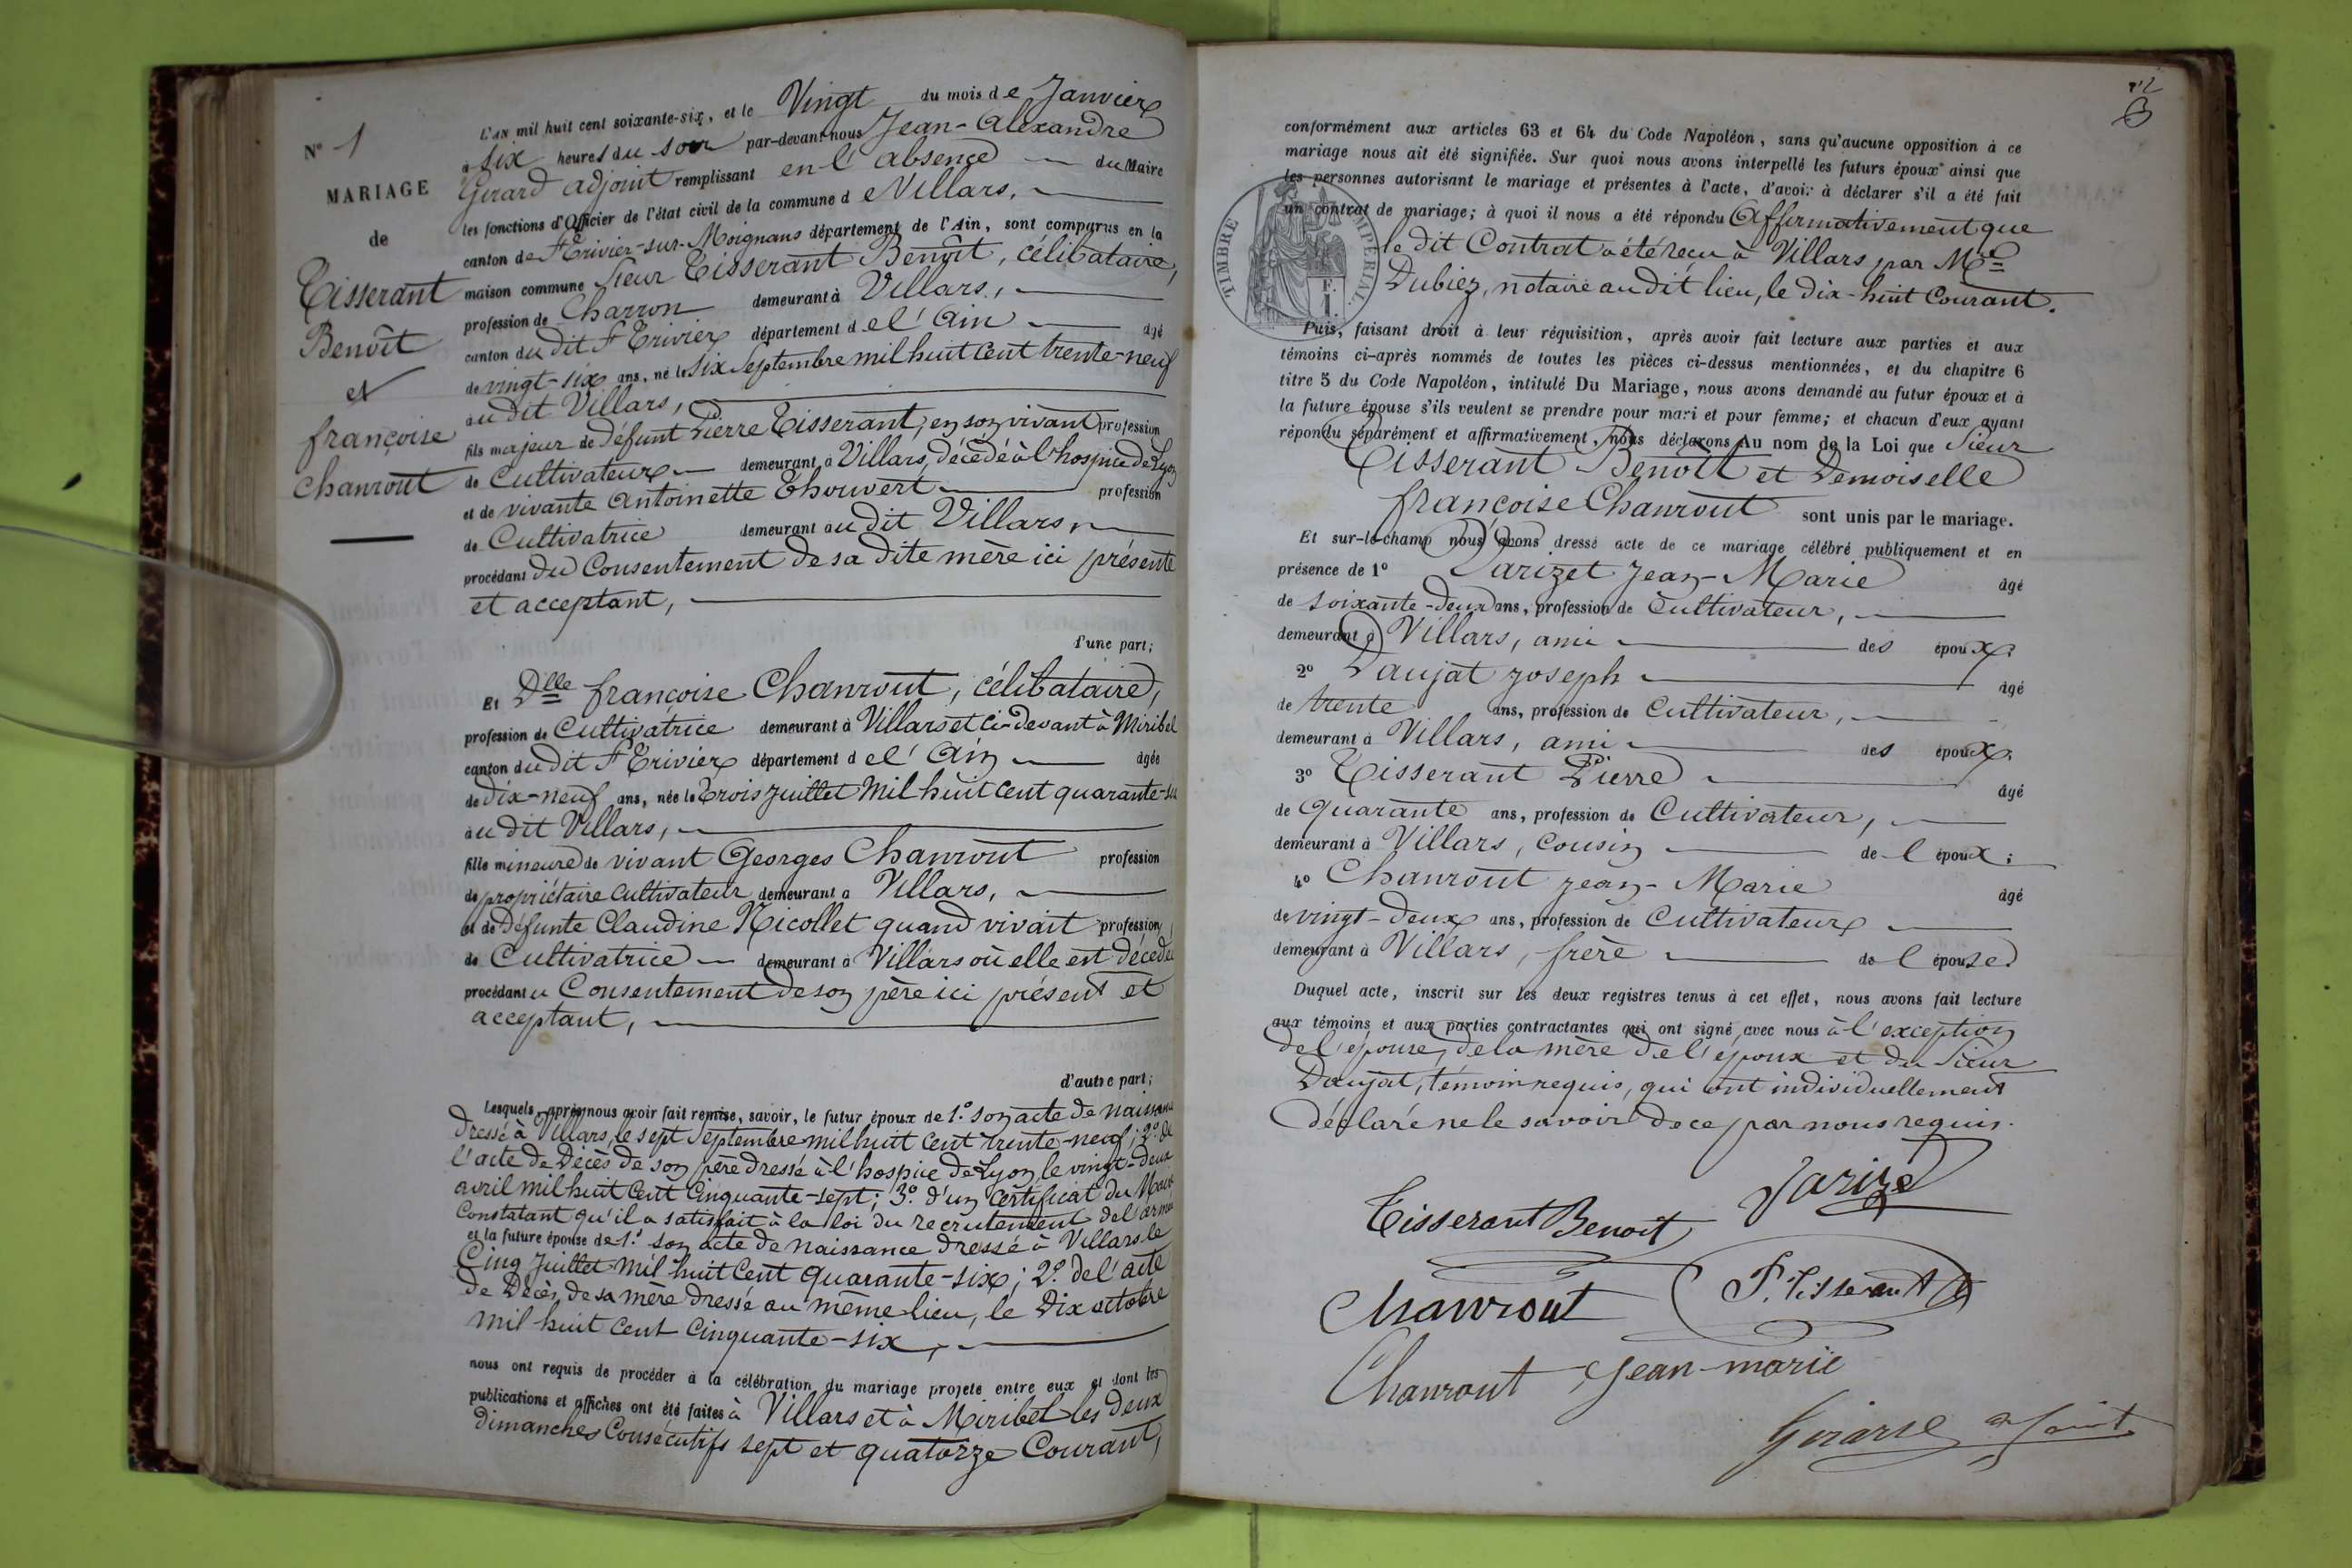 N° 1
MARIAGE
de
Tisserant
Benoît
et
françoise
Chanrout
L'AN mil huit cent soixante-six, et le Vingt du mois de Janvier
à six heures du soir par-devant nous Jean-Alexandre
Girard adjoint remplissant en l'absence du Maire
les fonctions d'Officier de l'état civil de la commune de Villars,
canton de St Trivier-sur-Moignans département de l'Ain, sont comparus en la
maison commune sieur Tisserant Benoît, célibataire,
profession de Charron demeurant à Villars,
canton du dit St Trivier département de l'Ain agé
de vingt-six ans, né le six Septembre mil huit cent trente-neuf
au dit Villars,
fils majeur de défunt Pierre Tisserant, en son vivant profession
de Cultivateur demeurant à Villars, décédé à l'hospice de Lyon
et de vivante antoinette Thouvert profession
de Cultivatrice demeurant au dit Villars,
procédant du Consentement de sa dite mère ici présente
et acceptant,
d'une part;
Et Dlle françoise Chanrout, célibataire,
profession de Cultivatrice demeurant à Villars et ci-devant à Miribel
canton du dit St Trivier département de l'Ain agée
de dix-neuf ans, née le Trois juillet Mil huit cent quarante-six
au dit Villars,
fille mineure de vivant Georges Chanrout profession
de propriétaire cultivateur demeurant à Villars,
et de défunte Claudine Nicollet quand vivait profession
de Cultivatrice demeurant à Villars où elle est décédée
procédant du Consentement de son père ici présent et
acceptant,
d'autre part;
Lesquels, après nous avoir fait remise, savoir, le futur époux de 1.° son acte de naissance
dressé à Villars, le sept Septembre mil huit cent trente-neuf; 2.° de
l'acte de décès de son père dressé à l'hospice de Lyon le vingt-deux
avril mil huit cent cinquante-sept; 3.° d'un certificat du Maire
Constatant qu'il a satisfait à la loi du recrutement de l'armée
et la future épouse de 1.° son acte de naissance dressé à Villars le
Cinq Juillet mil huit Cent quarante-six; 2.° de l'acte
de Décès de sa mère dressé au même lieu, le Dix octobre
mil huit cent cinquante-six,
nous ont requis de procéder à la célébration du mariage projeté entre eux et dont les
publications et affiches ont été faites à Villars et à Miribel les deux
dimanches Consécutifs sept et quatorze Courant,
conformément aux articles 63 et 64 du Code Napoléon, sans qu'aucune opposition à ce
mariage nous ait été signifiée. Sur quoi nous avons interpellé les futurs époux ainsi que
les personnes autorisant le mariage et présentes à l'acte, d'avoir à déclarer s'il a été fait
un contrat de mariage; à quoi il nous a été répondu Affirmativement que
le dit Contrat a été reçu à Villars par Me
Dubiez, notaire au dit lieu, le dix-huit Courant.
TIMBRE IMPÉRIAL.
Puis, faisant droit à leur réquisition, après avoir fait lecture aux parties et aux
témoins ci-après nommés de toutes les pièces ci-dessus mentionnées, et du chapitre 6
titre 5 du Code Napoléon, intitulé Du Mariage, nous avons demandé au futur époux et à
la future épouse s'ils veulent se prendre pour mari et pour femme; et chacun d'eux ayant
répondu séparément et affirmativement, nous déclarons Au nom de la Loi que Sieur
Tisserant Benoît et Demoiselle
françoise Chanrout sont unis par le mariage.
Et sur-le-champ nous avons dressé acte de ce mariage célébré publiquement et en
présence de 1° Parizet Jean-Marie âgé
de soixante-deux ans, profession de Cultivateur,
demeurant à Villars, ami des époux.
2° Daujat Joseph âgé
de trente ans, profession de Cultivateur,
demeurant à Villars, ami des époux.
3° Tisserant Pierre âgé
de quarante ans, profession de Cultivateur,
demeurant à Villars, cousin de l'époux;
4° Chanrout Jean-Marie âgé
de vingt-deux ans, profession de Cultivateur
demeurant à Villars, frère de l'épouse.
Duquel acte, inscrit sur les deux registres tenus à cet effet, nous avons fait lecture
aux témoins et aux parties contractantes qui ont signé avec nous à l'exception
de l'épouse, de la mère de l'époux et du Sieur
Daujat, témoin requis, qui ont individuellement
déclaré ne le savoir de ce par nous requis.
Tisserant Benoit Parizet
Chanrout P. Tisserant
Chanrout Jean-marie
Girard adjoint